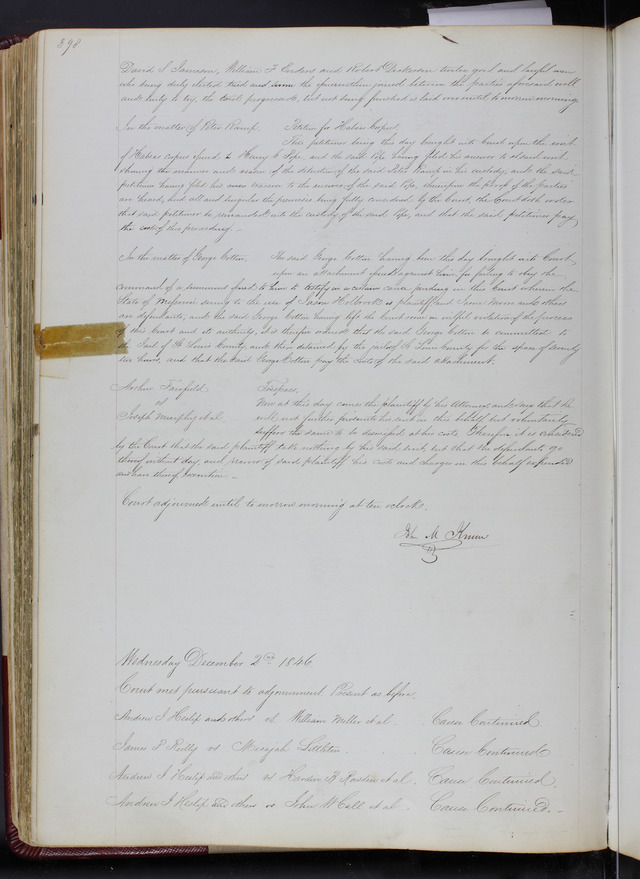 398
David S Jameson, William F Enders and Robert Dickerson twelve good and lawful men
who being duly elected tried and sworn the issue then joined between the parties aforesaid well
and truly to try, the trial progressed, but not being finished is laid over until tomorrow morning
In the matter of Peter Ramp. Petition for Habeas Corpus.
The petitioner being this day brought into Court upon the writ
of Habeas corpus issued to Henry C Pope and the said Pope having filed his answer to said writ
showing the manner and cause of the detention of the said Peter Ramp in his custody, and the said
petitioner having filed his answer to the return of the said Pope, thereupon the proofs of the parties
are heard, and all and singular the premises being fully considered by the Court, the Court doth order
that said petitioner be remanded into the custody of the said Pope, and that the said petitioner pay
the costs of this proceeding. –
In the matter of George Cotton. The said George Cotton having been this day brought into Court
upon an attachment issued against him for failing to obey the
command of a summons issued to him to testify in a certain cause pending in this Court wherein the
State of Missouri suing to the use of Jason Holbrook is plaintiff and Simr and others
are defendants, and the said George Cotton having left the Court room in wilful violation of the process
of this Court and its authority, it is therefore ordered that the said George Cotton be committed to
the Jail of St Louis County, and there detained by the jailor of St Louis County for the space of Seventy
two hours, and that the said George Cotton pay the costs of the said attachment.
Fairfield Trespass.
vs Now at this day comes the plaintiff by his Attorney and says that he
Joseph Murphy et al will not further prosecute his suit in this behalf but voluntarily
suffers the same to be dismissed at his costs. Therefore it is considered
by the Court that the said plaintiff take nothing by his said suit, but that the defendants go
thereof without day, and recover of said plaintiff his costs and charges in this behalf expended
and have thereof Execution. –
Court adjourned until tomorrow morning at ten oclock.
John M Krum
Wednesday December 2nd 1846
Court met pursuant to adjournment Present as before.
Andrew J Heslip and others vs William Miller et al Cause Continued.
James P Reilly vs Micajah Littleton. Cause Continued
Andrew J Heslip and others vs et al. Cause Continued.
Andrew J Heslip and others vs John McCall et al. Cause Continued. –